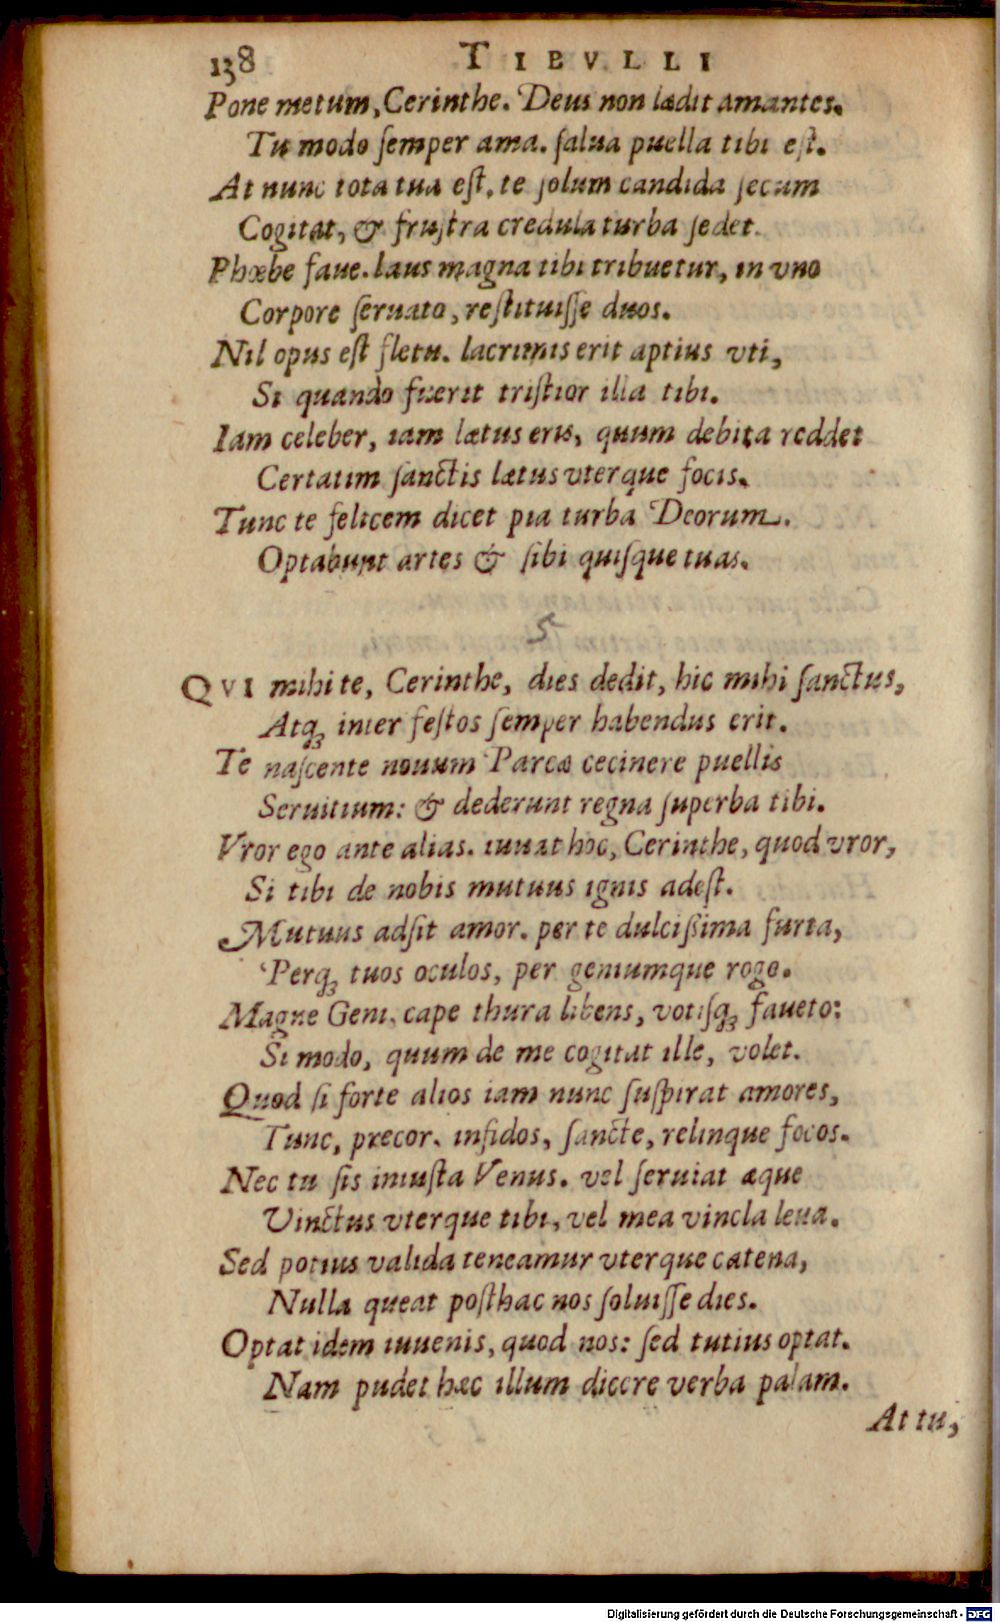 138 TIBVLLI
Pone metum, Cerinthe. Deus non lædit amantes.
Tu modo ſemper ama. ſalua puella tibi eſt.
At nunc tota tua eſt. te ſolum candida ſecum
Cogitat, & fruſtra credula turba ſedet.
Phœbe faue. laus magna tibi tribuetur, in vno
Corpore ſeruato, reſtituiſſe duos.
Nil opus eſt fletu. lacrimis erit aptius vti,
Si quando fuerit triſtior illa tibi.
Iam celeber, iam lætus eris, quum debita reddet
Certatim ſanctis lætus vterque focis.
Tunc te felicem dicet pia turba Deorum.
Optabunt artes & ſibi quiſque tuas.
5
QVI mihi te, Cerinthe, dies dedit, hic mihi ſanctus,
Atq; inter feſtos ſemper habendus erit.
Te naſcente nouum Parcæ cecinere puellis
Seruitium: & dederunt regna ſuperba tibi.
Vror ego ante alias. iuuat hoc, Cerinthe, quod vror,
Si tibi de nobis mutuus ignis adeſt.
Mutuus adſit amor. per te dulciſſima furta,
Perq; tuos oculos, per geniumque rogo.
Magne Geni, cape thura libens, votiſq; faueto:
Si modo, quum de me cogitat ille, volet.
Quod ſi forte alios iam nunc ſuſpirat amores,
Tunc, precor. infidos, ſancte, relinque focos.
Nec tu ſis iniuſta Venus. vel ſeruiat æque
Vinctus vterque tibi, vel mea vincla leua.
Sed potius valida teneamur vterque catena,
Nulla queat poſthac nos ſoluiſſe dies.
Optat idem iuuenis, quod nos: ſed tutius optat.
Nam pudet hæc illum dicere verba palam.
At tu,
Digitalisierung gefördert durch die Deutsche Forschungsgemeinschaft - DFG